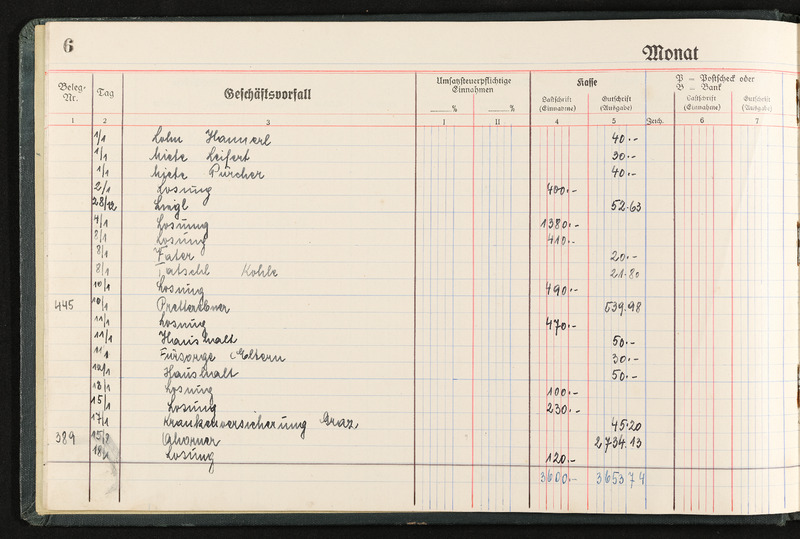 6
Monat
Beleg-Nr. Tag Geschäftsvorfall Umsatzsteuerpflichtige Einnahmen Kasse P = Postscheck oder B = Bank
% % Lastschrift (Einnahme) Gutschrift (Ausgabe) Zeich. Lastschrift (Einnahme) Gutschrift (Ausgabe)
1 2 3 I II 4 5 6 7
1/1 Lohn Hannerl 40.-
1/1 Miete Leifert 30.-
1/1 Miete Pürcher 40.-
2/1 Losung 400.-
28/12 Liegl 52.63
4/1 Losung 1380.-
8/1 Losung 410.-
8/1 Fater 20.-
8/1 Tatschl Kohle 21.80
10/1 Losung 490.-
445 10/1 Prellerebner 539.98
11/1 Losung 470.-
11/1 Haushalt 50.-
11/1 Fürsorge Eltern 30.-
12/1 Haushalt 50.-
13/1 Losung 100.-
15/1 Losung 230.-
17/1 Krankenversicherung Graz 45.20
389 Ghorner 2734.13
18/1 Losung 120.-
3600.- 3653 74